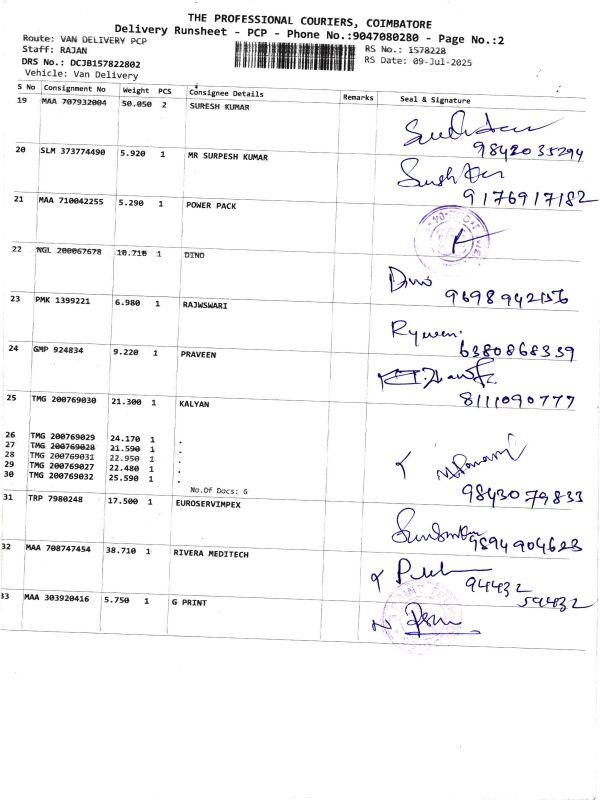 THE PROFESSIONAL COURIERS, COIMBATORE
Delivery Runsheet - PCP - Phone No.:9047080280 - Page No.:2
Route: VAN DELIVERY PCP
Staff: RAJAN
RS No.: 1578228
DRS No.: DCJB157822802
RS Date: 09-Jul-2025
Vehicle: Van Delivery
S No Consignment No Weight PCS Consignee Details Remarks Seal & Signature
19 MAA 707932004 50.050 2 SURESH KUMAR
9842035294
20 SLM 373774490 5.920 1 MR SURPESH KUMAR
9176917182
21 MAA 710042255 5.290 1 POWER PACK
22 NGL 200067678 10.710 1 DINO
Dino
23 PMK 1399221 6.980 1 RAJWSWARI
6380868339
24 GMP 924834 9.220 1 PRAVEEN
8111090777
25 TMG 200769030 21.300 1 KALYAN
26 TMG 200769029 24.170 1 .
27 TMG 200769028 21.590 1 .
28 TMG 200769031 22.950 1 .
29 TMG 200769027 22.480 1 .
30 TMG 200769032 25.590 1 .
No.Of Docs: 6
9843079833
31 TRP 7980248 17.500 1 EUROSERVIMPEX
9894904623
32 MAA 708747454 38.710 1 RIVERA MEDITECH
94432
59432
33 MAA 303920416 5.750 1 G PRINT